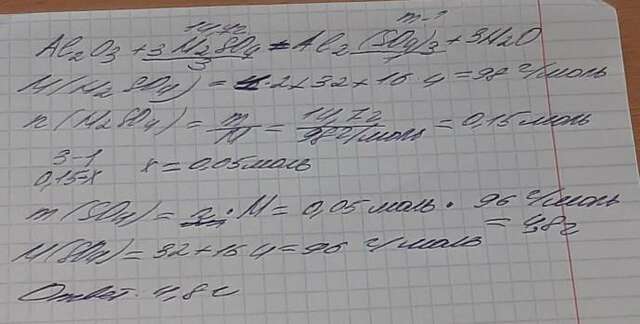 14,7г m-?
Al2O3 + 3H2SO4 = Al2(SO4)3 + 3H2O
3 1
M(H2SO4) = 1·2+32+16·4 = 98 г/моль
n(H2SO4) = m/M = 14,7г/98г/моль = 0,15 моль
3-1
0,15-x x = 0,05 моль
m(SO4) = n·M = 0,05 моль · 96 г/моль
= 4,8г
M(SO4) = 32+16·4 = 96 г/моль
Ответ: 4,8г